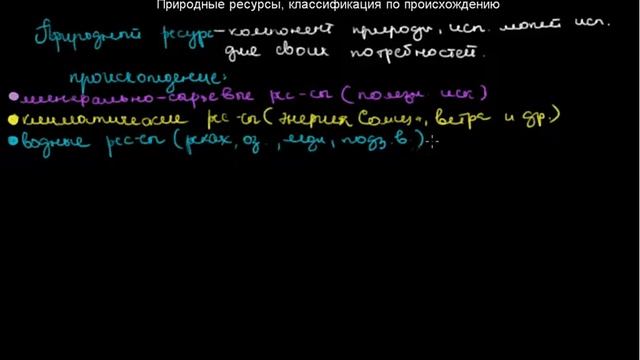 Природные ресурсы, классификация по происхождению
Природный ресурс - компонент природы, исп. может исп.
для своих потребностей.
происхождение:
минерально-сырьевые рес-сы (полезн. иск)
климатические рес-сы (энергия Солнца, ветра и др.)
водные рес-сы (реках, оз., ледн, подз. в.)